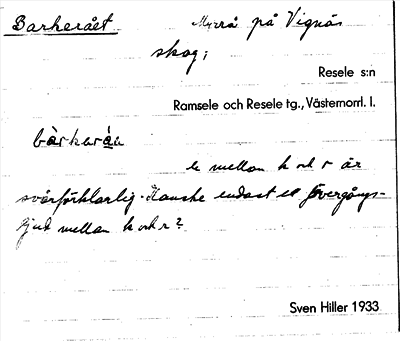 Barkerået Myrå på Vignås
skog;
Resele s:n
Ramsele och Resele tg., Västernorrl. l.
bàrkəråa
e mellan k och r är
svårförklarlig. Kanske endast ett övergångs-
ljud mellan k och r?
Sven Hiller 1933